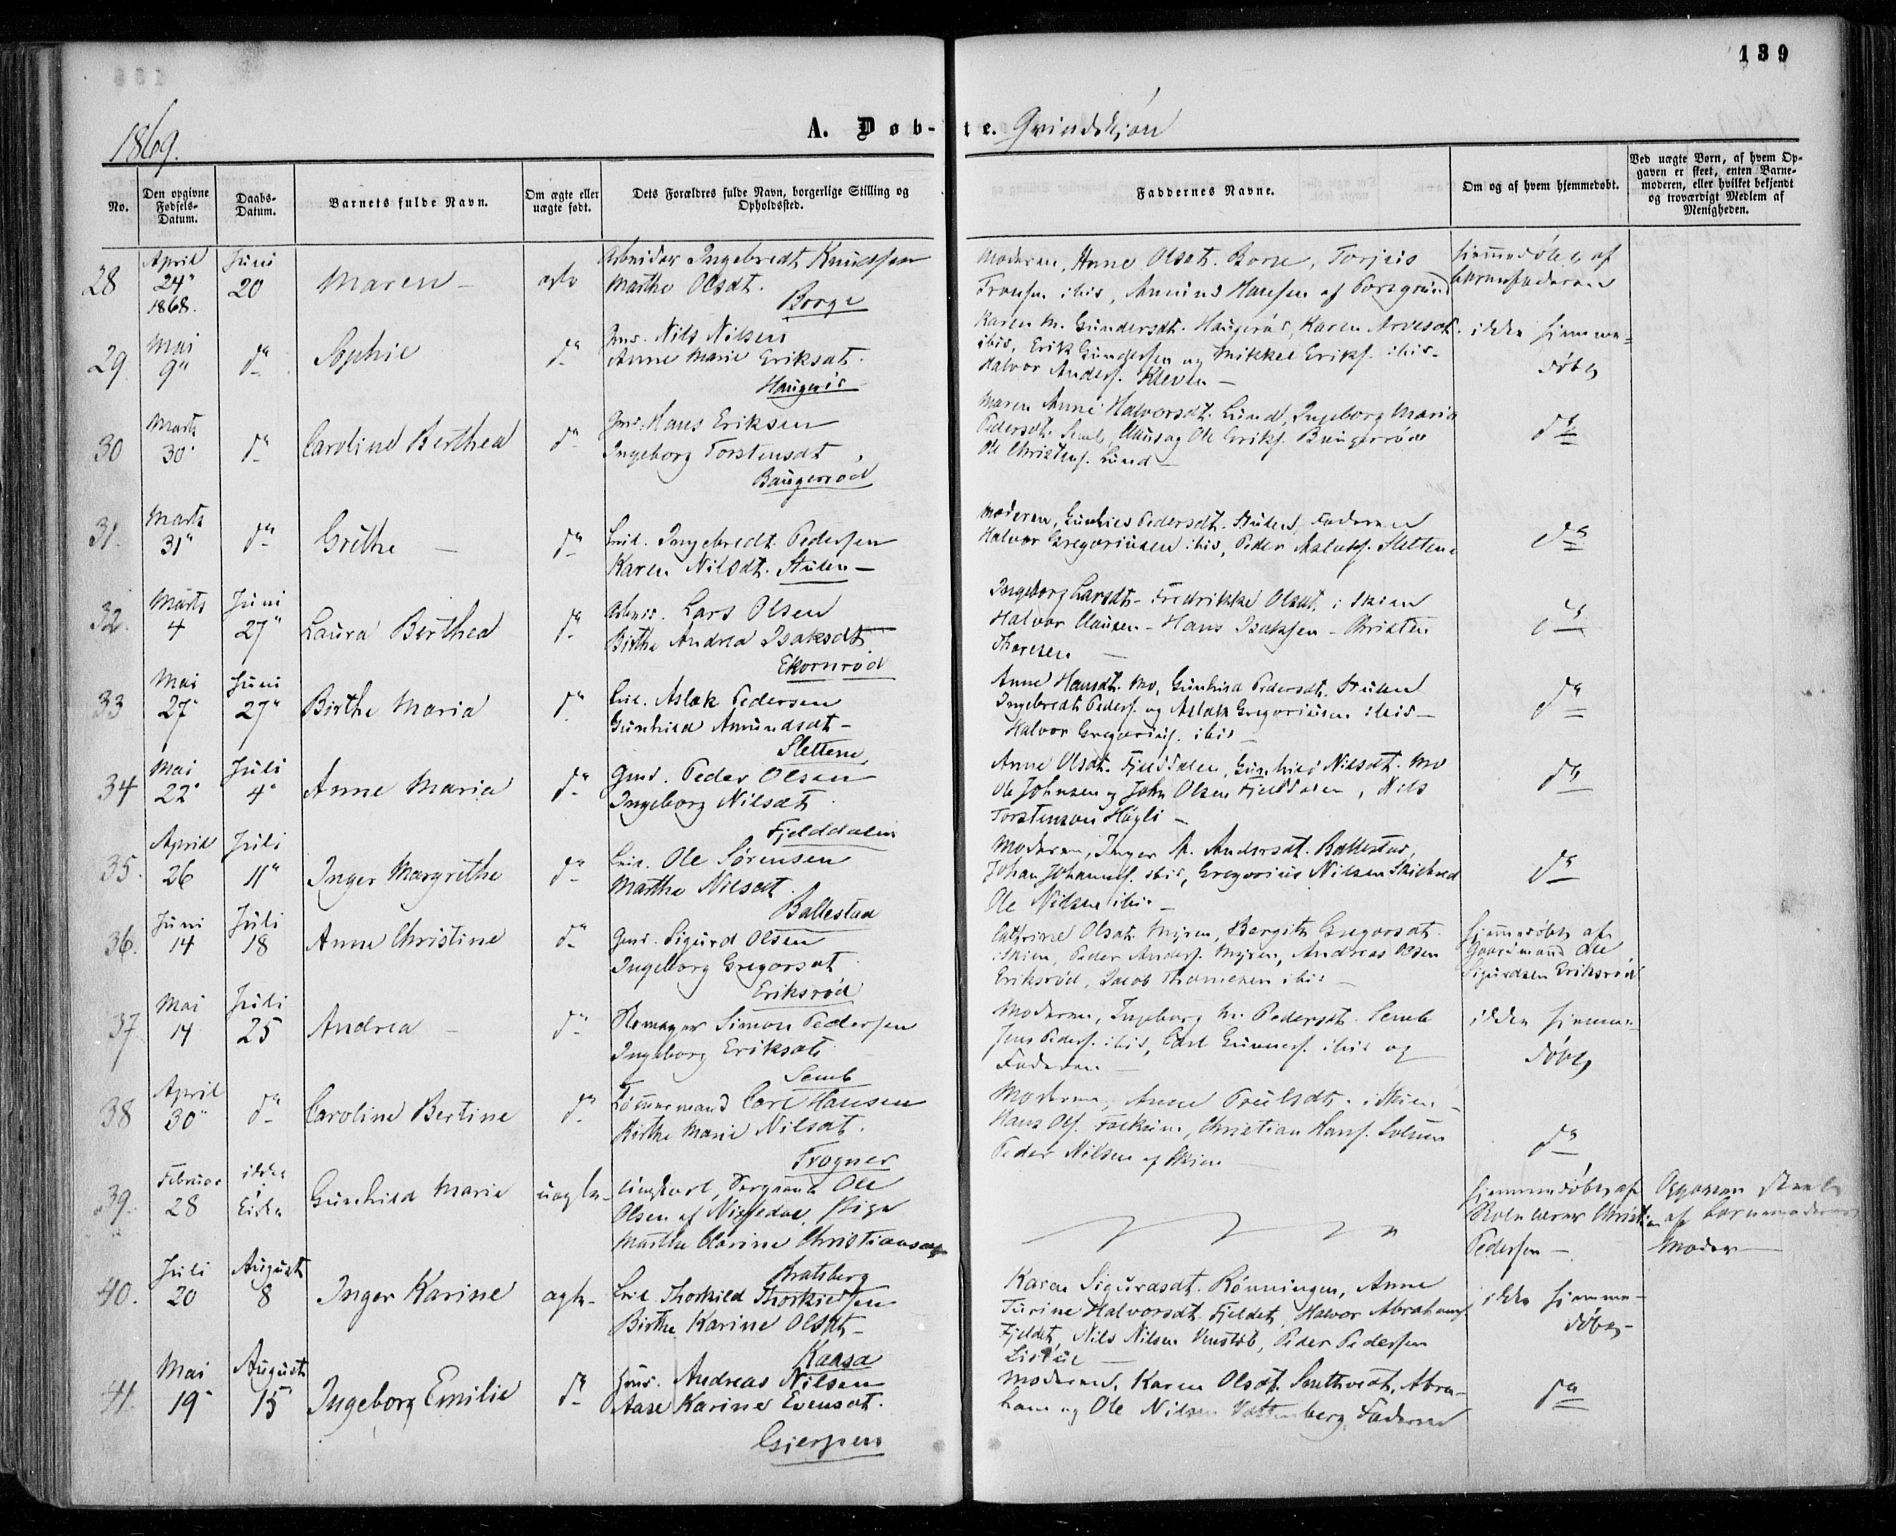 139
1869.
A. Døb-te. Qvindekjøn
No.
Den opgivne Fødsels-Datum.
Daabs-Datum.
Barnets fulde Navn.
Om ægte eller uægte født.
Dets Forældres fulde Navn, borgerlige Stilling og Opholdssted.
Faddernes Navne.
Om og af hvem hjemmedøbt.
Ved uægte Børn, af hvem Opgaven er skeet, enten Barnemoderen, eller hvilket bekjendt og troværdigt Medlem af Menigheden.
28
April 24" 1868.
Juni 20
Maren –
Arbeider Ingebredt Knudsen
Marthe Olsdt.
Borge
Moderen, Anne Olsdt. Borge, Torjus
Fransen ibid, Amund Hansen af Porsgrund
hjemmedøbt af
barnefaderen
29.
Mai 9"
do
Sophie
do
Gmd. Nils Nilsen
Anne Marie Eriksdt.
Haugerød
Karen M. Gundersdt. Haugerød, Karen
ibid, Erik Gundersen og Mikkel Eriks. ibid –
Halvor Anders. Kleven –
ikke hjemme-
døbt
30
Marts 30"
do
Caroline Berthea
do
Gmd. Hans Eriksen
Ingeborg Torstensdt.
Baugerød
Maren Anne Halvorsdt. Lund, Ingeborg Maria
Pedersdt. Semb, Claus og Ole Eriks. Baugerrød
Ole Christens. Lund –
do
31.
Marts 31"
do
Grethe –
do
Leil. Ingebredt Pedersen
Karen Nilsdt. Stulen –
Moderen, Gunhild Pedersdt. Stulen, Faderen
Halvor Gregoriusen ibid, Peder Aslaks. Slettene
do
32.
Marts 4
Juni 27"
Laura Berthea
do
Arbeid. Lars Olsen
Birthe Andrea Isaksdt.
Ekornrød
Ingeborg Larsdt – Fredrikke Olsdt. i Skien
Halvor Clausen – Hans Isaksen – Christen
Thoresen –
do
33
Mai 27"
Juni 27"
Birthe Maria
do
Leil. Aslak Pedersen
Gunhild Amundsdt –
Slettene
Anne Hansdt. Mo, Gunhild Pedersdt. Stulen
Ingebredt Peders. og Aslak Gregoriusen ibid –
Halvor Gregorius. ibid –
do
34
Mai 22"
Juli 4"
Anne Maria
do
Gmd. Peder Olsen
Ingeborg Nilsdt.
Fjelddalen
Anne Olsdt. Fjelddalen, Gunhild Nilsdt. Mo
Ole Johnsen og John Olsen Fjelddalen, Nils
Torstensen Høgli –
do
35.
April 26
Juli 11"
Inger Margrethe
do
Leil. Ole Sørensen
Marthe Nilsdt.
Ballestad
Moderen, Inger A. Andersdt. Ballestad,
Johan Johannes. ibid, Gregorius Nilsen
Ole Nilsen ibid –
do
36.
Juni 14
Juli 18
Anne Christine
do
Gmd. Sigurd Olsen
Ingeborg Gregorsdt.
Eriksrød
Cathrine Olsdt. Myren, Bergith Gregorsdt.
i Skien, Peder Anders. Myren, Andreas Olsen
Eriksrød, Jacob Thomesen ibid –
hjemmedøbt af
Gaardmand Ole
Sigurdsen Eriksrød
37.
Mai 14
Juli 25
Andrea –
do
Simon Pedersen
Ingeborg Eriksdt.
Semb
Moderen, Ingeborg M. Pedersdt. Semb
Jens Peders. ibid, Carl Gunners. ibid og
Faderen –
ikke hjemme-
døbt
38
April 30"
do
Caroline Bertine
do
Carl Hansen
Birthe Marie Nilsdt.
Frogner
Moderen, Anne i Skien –
Hans Ols. Falkum, Christian Hans.
Peder Nilsen af Skien
do
39.
Februar 28
ikke Kirke
Gunhild Marie
uægte
Ungkarl, Sergeant Ole
Olsen af Nissedal, Pige
Marthe Clarine Christiansdt
Bratsberg
hjemmedøbt af
Skolelærer Christian
Pedersen –
Opgaven skeet
af barnemoderens
Moder –
40.
Juli 20
August 8
Inger Karine
ægte
Leil. Thorkild Thorkildsen
Birthe Karine Olsdt –
Kaasa
Karen Sigurdsdt. Rønningen, Anne
Turine Halvorsdt. Fjeldet, Halvor Abrahams.
Fjeldet, Nils Nilsen Venstøb, Peder Pedersen
ikke hjemme-
døbt –
41.
Mai 19"
August 15
Ingeborg Emilie
do
Gmd. Andreas Nilsen
Aase Karine Evensdt.
Gjerpen
Moderen, Karen Olsdt. Abra-
ham og Ole Nilsen Faderen
do